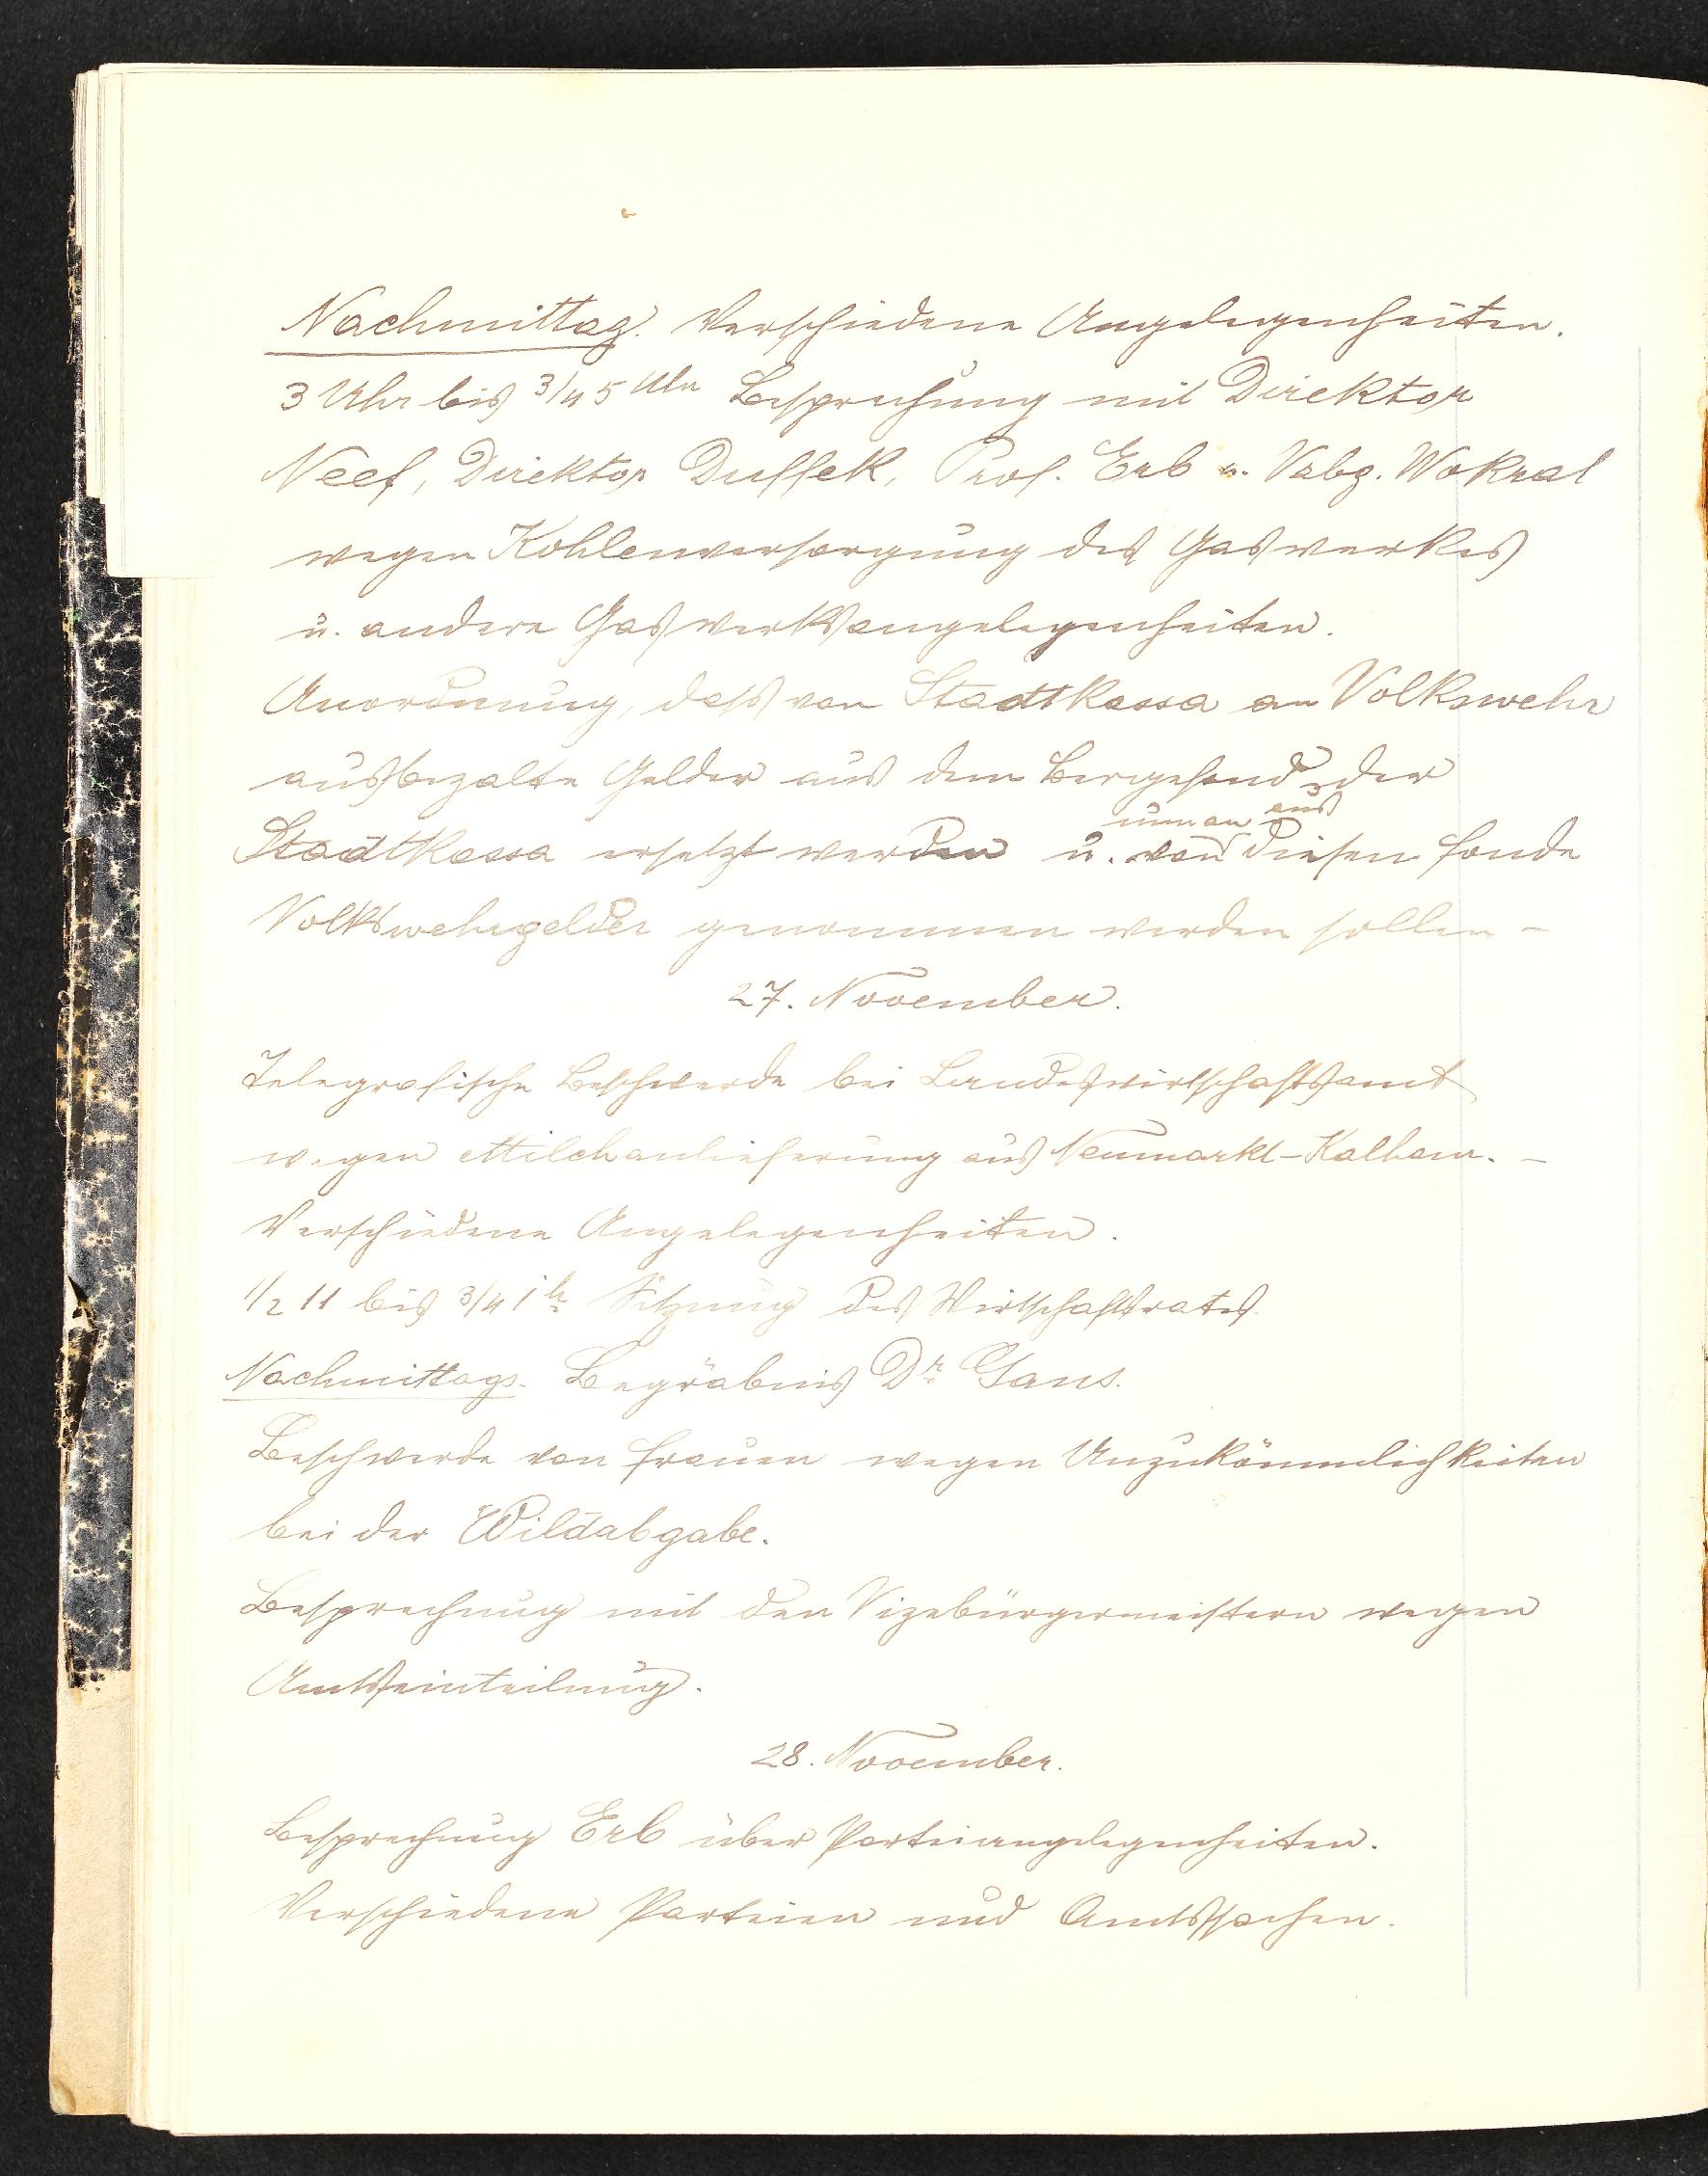 Nachmittag. Verschiedene Angelegenheiten.
3 Uhr bis 3/4 5 Uhr Besprechung mit Direktor
Neef, Direktor Dussek, Prof. Erb u. Vzbg. Wokral
wegen Kohlenversorgung des Gaswerkes
u. andere Gaswerksangelegenheiten.
Anordnung, dass von Stadtkassa an Volkswehr
ausbezalte Gelder aus dem der
nunan aus
Stadtkassa ersetzt werden u. von diesen Fonde
Volkswehrgelder genommen werden sollen –
27. November.
Telegrafische Beschwerde bei Landeswirtschaftsamt
wegen Milchanlieferung aus Neumarkt-Kallham. –
Verschiedene Angelegenheiten.
1/2 11 bis 3/4 1 h Sitzung des Wirtschaftsrates.
Nachmittags. Begräbnis Dr Gans.
Beschwerde von Frauen wegen Unzukömmlichkeiten
bei der Wildabgabe.
Besprechung mit den Vizebürgermeistern wegen
Amtseinteilung.
28. November.
Besprechung Erb über Parteiangelegenheiten.
Verschiedene Parteien und Amtssachen.